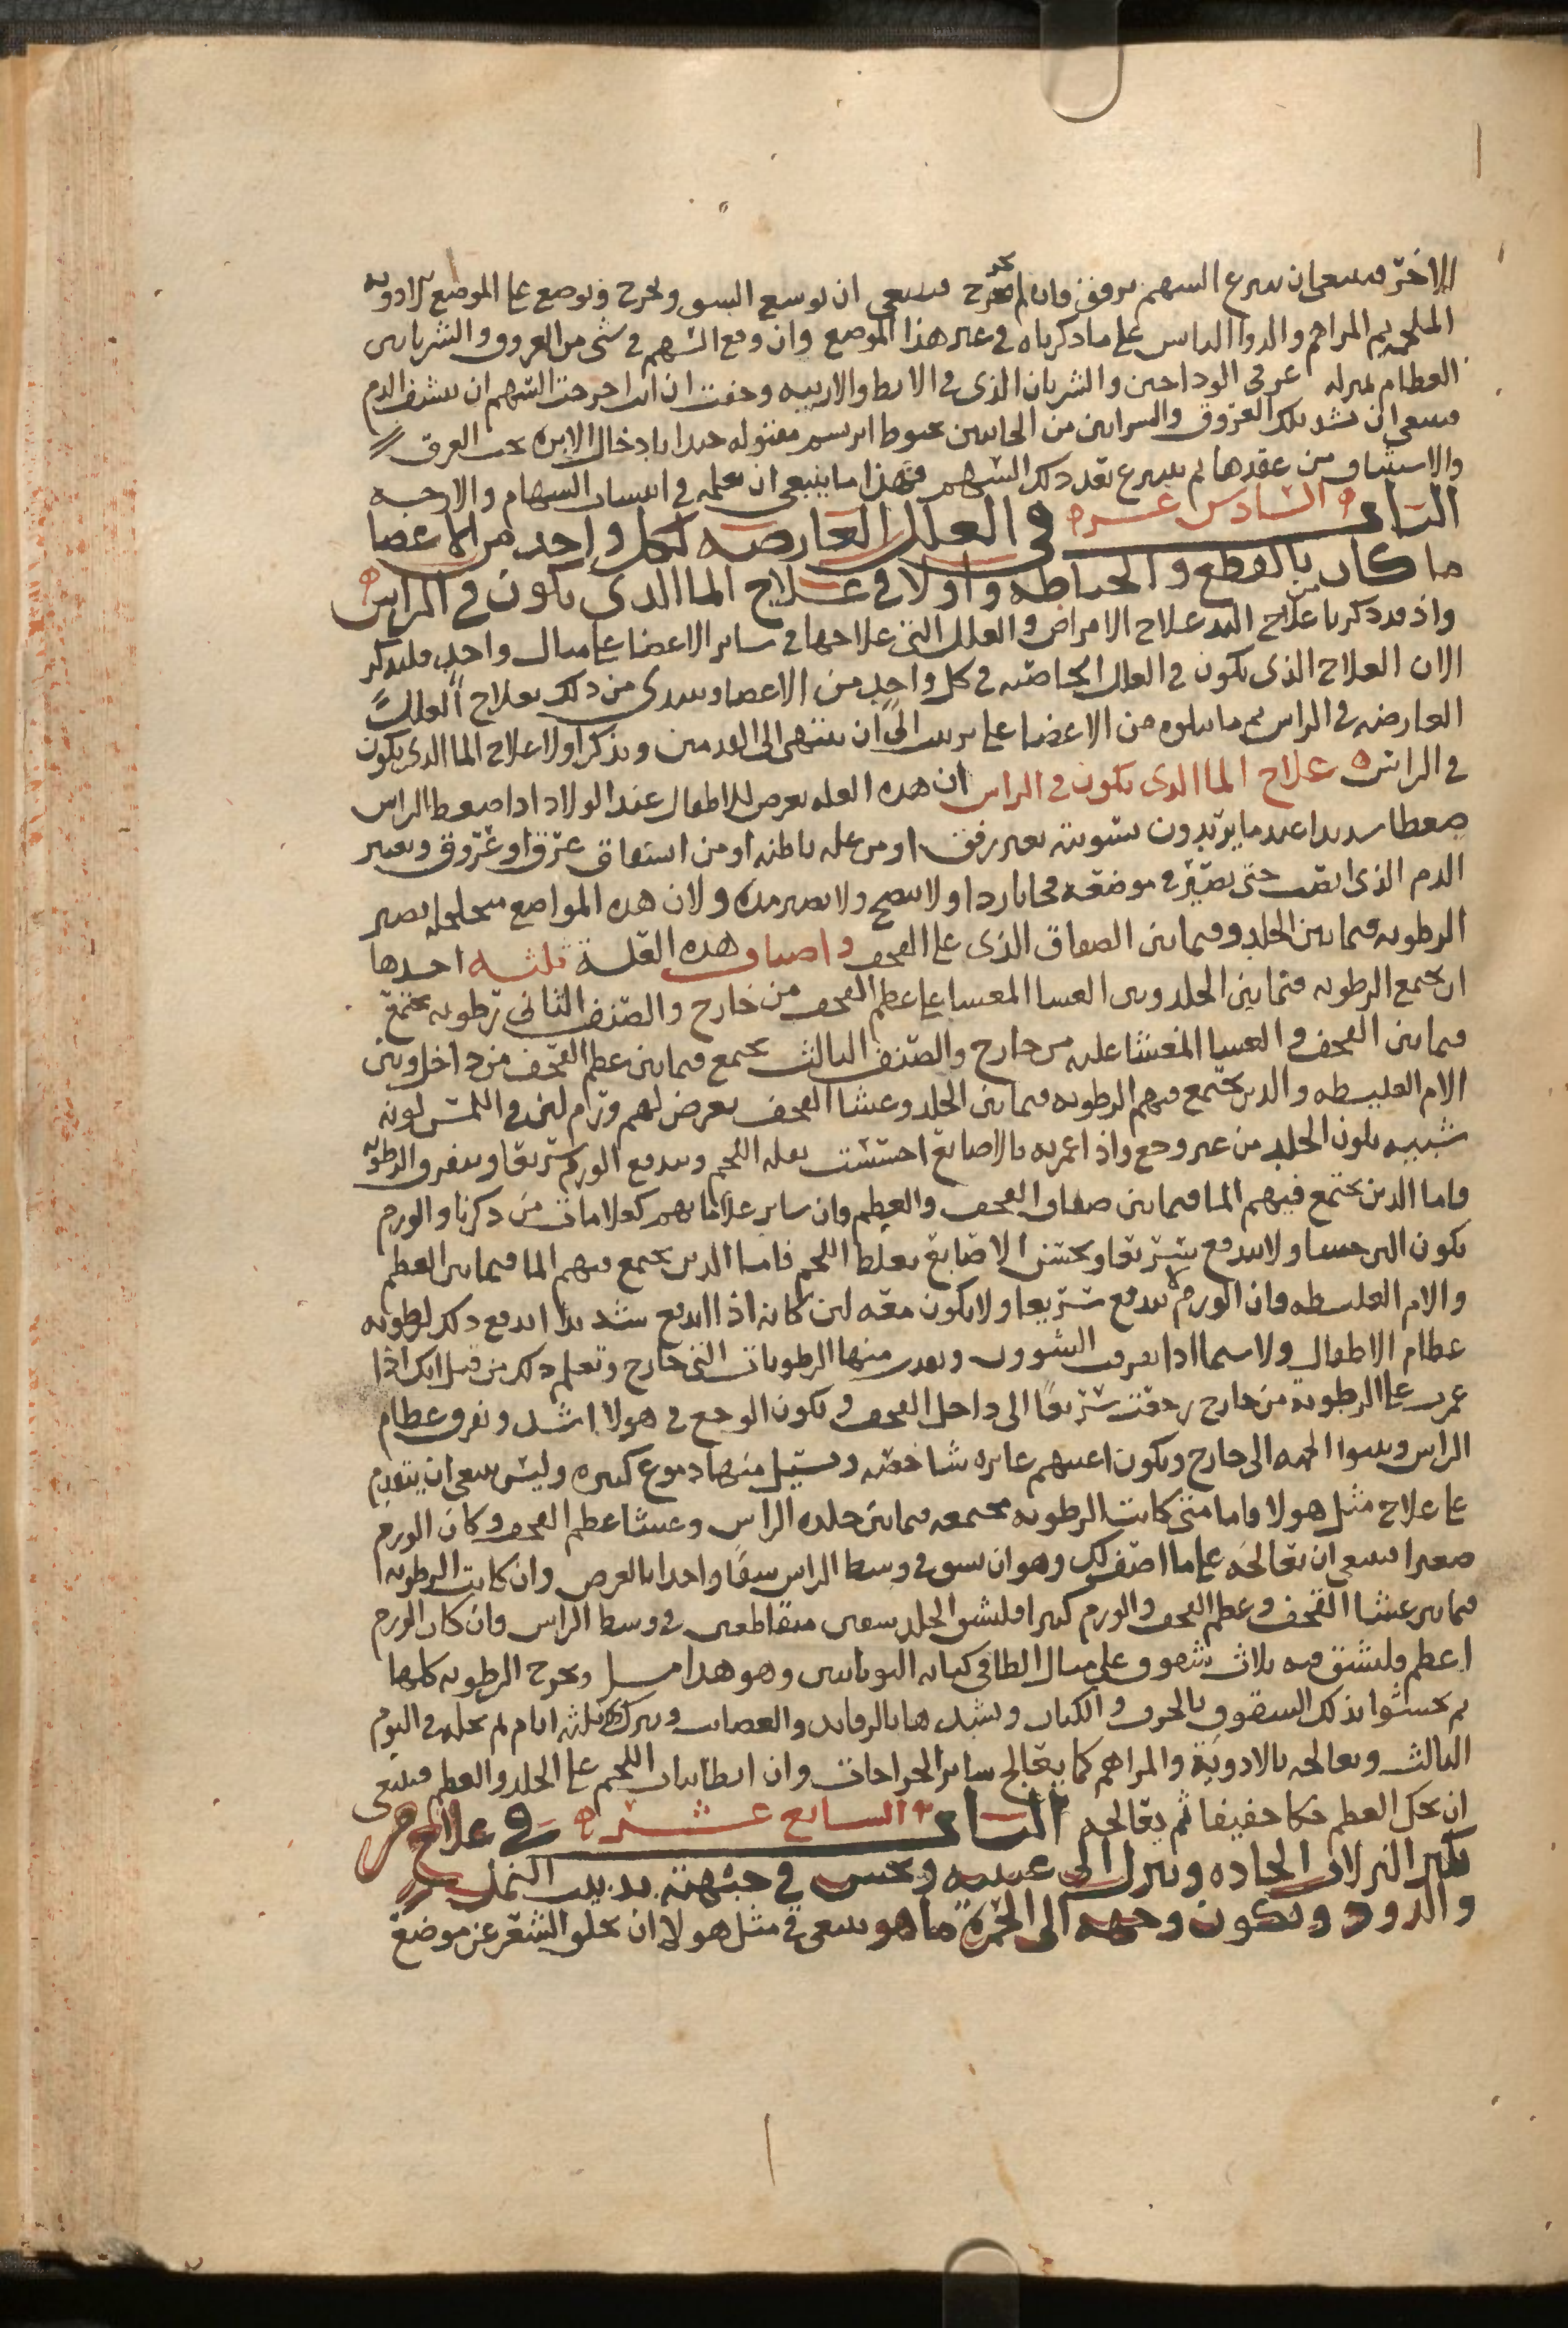 الاخر فينبغي ان ينزع السهم برفق فان لم يخرج فينبغي ان يوسع الشق ويخرج ويوضع على الموضع الادويه
الملحمه ثم المراهم والدوا اليابس على ما ذكرناه في غير هذا الموضع وان وقع السهم في شي من العروق والشريانين
العظام بمنزله عرقي الوداجين والشريان الذي في الابط والاربيه وخفت ان انت اخرجت السهم ان ينزف الدم
فينبغي ان تشد تلك العروق والشرايين من الجانبين بخيوط ابريسم مفتوله جيدا بادخال الابره تحت العرق
والاستيثاق من عقدها ثم ينزع بعد ذلك السهم فهذا ما ينبغي ان تعلمه في السهام والازجه
الباب السادس عشر في العلل العارضه لكل واحد من الاعضا
ما كان بالقطع والخياطه واولا في علاج الما الذي يكون في الراس
واذ قد ذكرنا من علاج اليد علاج الامراض والعلل التي علاجها في ساير الاعضا على مثال واحد فلنذكر
الان العلاج الذي يكون في العلل الخاصيه في كل واحد من الاعضا ونبتدي من ذلك بعلاج العلل
العارضه في الراس ثم ما يتلوه من الاعضا على ترتيب الى ان ننتهي الى القدمين ونذكر اولا علاج الما الذي يكون
في الراس علاج الما الذي يكون في الراس ان هذه العله تعرض للاطفال عند الولاد اذا ضغط الراس
ضغطا شديدا عندما يريدون تسويته بغير رفق او من عله باطنه او من انبثاق عرق او عروق ويصير
الدم الذي انصب حتى يصير في موضعه باردا ولا ينضج ولا يصير مده ولان هذه المواضع متخلخله تصير
الرطوبه فيما بين الجلد وفيما بين الصفاق الذي على القحف واصناف هذه العله ثلثه احدها
ان تجتمع الرطوبه فيما بين الجلد وبين الغشا المغشا على عظم القحف من خارج والصنف الثاني رطوبه تجتمع
فيما بين القحف والغشا المغشا عليه من خارج والصنف الثالث تجتمع فيما بين عظم القحف من داخل وبين
الام الغليظه والذين تجتمع فيهم الرطوبه فيما بين الجلد وغشا القحف يعرض لهم ورم لين في اللمس لونه
شبيه بلون الجلد من غير وجع واذا غمزته بالاصابع احسست بقله اللحم ويندفع الورم سريعا وتتفرق الرطوبه
فاما الذين تجتمع فيهم الما فيما بين صفاق القحف والعظم فان ساير علاماتهم كعلامات من ذكرنا والورم
يكون الين جسا ولا يندفع سريعا وتحس الاصابع بغلظ اللحم فاما الذين تجتمع فيهم الما فيما بين العظم
والام الغليظه فان الورم لا يندفع سريعا ولا يكون معه لين كانه اذا اندفع شديدا اندفع ذلك لرطوبه
عظام الاطفال ولا سيما اذا تفرقت الشوون ونفذت منها الرطوبات التي خارج وتعلم ذلك من قبل انك اذا
غمزت على الرطوبه من خارج رجعت سريعا الى داخل القحف ويكون الوجع في هولا اشد وتفرق عظام
الراس وينتوا الجبهه الى خارج وتكون اعينهم غايره شاخصه وتسيل منها دموع كثيره وليس ينبغي ان يتقدم
على علاج مثل هولا واما متى كانت الرطوبه مجتمعه فيما بين جلده الراس وغشا عظم القحف وكان الورم
صغيرا فينبغي ان تعالجه على ما اصف لك وهو ان تشق في وسط الراس شقا واحدا بالعرض وان كانت الرطوبه
فيما بين غشا القحف وعظم القحف والورم كبيرا فلتشق الجلد شقين متقاطعين في وسط الراس وان كان الورم
اعظم فلتشق فيه ثلاث شقوق على مثال في كتابه اليونانيين وهو هذا وتخرج الرطوبه كلها
ثم تحشوا بذلك الشقوق بالخرق والكتان وتشدها بالرفايد والعصايب وتتركه ثلثه ايام ثم تحله في اليوم
الثالث وتعالجه بالادويه والمراهم كما يعالج ساير الجراحات وان ابطا نبات اللحم على الجلد والعظم فينبغي
ان تحك العظم حكا خفيفا ثم تعالجه الباب السابع عشر في علاج من
تكثر النزلات الحاده وتنزل الى عينيه ويحس في جبهته بدبيب النمل
والدود ويكون وجهه الى الحمره ما هو ينبغي في مثل هولا ان تحلق الشعر عن موضع